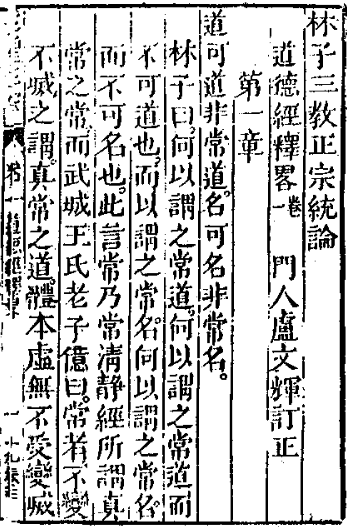 林子三教正宗統論
道德經釋畧卷一 門人盧文輝訂正
第一章
道可道非常道。名可名非常名。
林子曰。何以謂之常道。何以謂之常道而
不可道也。而以謂之常名。何以謂之常名
而不可名也。此言常乃常清靜經所謂真
常之常。而武城王氏老子億曰。常者。不變
不滅之謂。真常之道。體本虛無。不受變滅